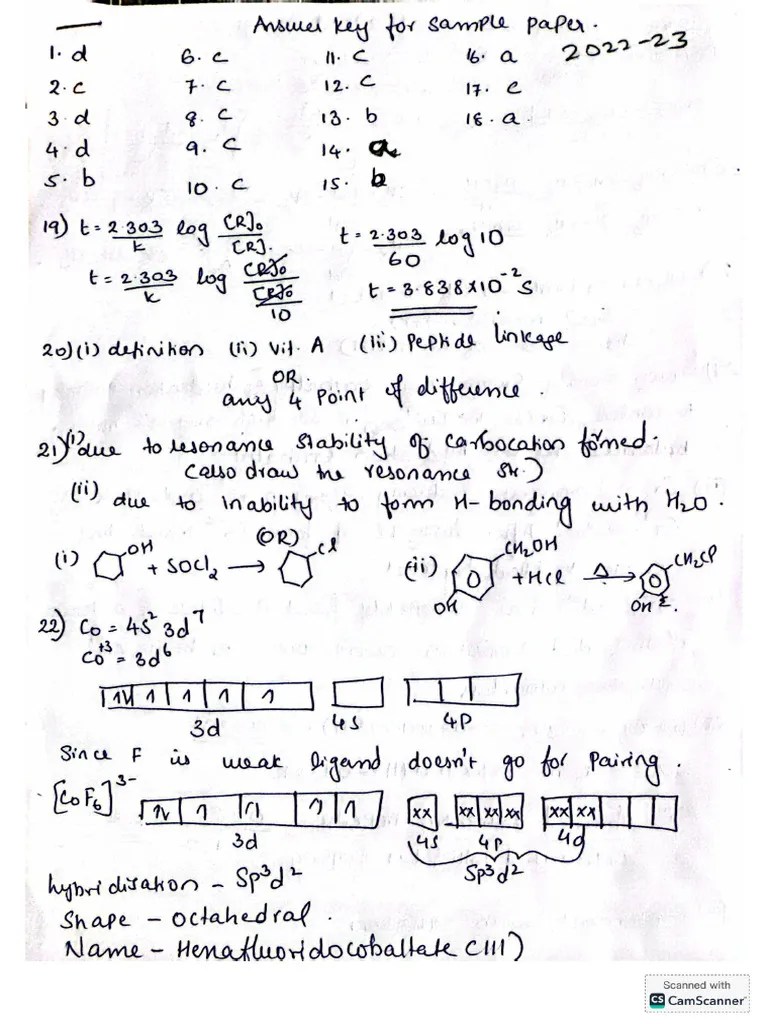 Answer key for sample paper.
2022-23
1. d 6. c 11. c 16. a
2. c 7. c 12. c 17. c
3. d 8. c 13. b 18. a
4. d 9. c 14. a
5. b 10. c 15. b
19) t = 2.303/k log [R]₀/[R]. t = 2.303/60 log 10
t = 2.303/k log [R]₀/[R]₀/10 t = 3.838 x 10⁻² s
20) (i) definition (ii) Vit. A (iii) Peptide linkage
OR
any 4 Point of difference.
21) (i) due to resonance stability of carbocation formed.
(also draw the resonance str.)
(ii) due to inability to form H-bonding with H₂O.
(OR)
(i) OH + SOCl₂ → Cl (ii) CH₂OH OH + HCl Δ → CH₂Cl OH
22) Co = 4s² 3d⁷
Co⁺³ = 3d⁶
1l 1 1 1 1
3d 4s 4p
Since F is weak ligand doesn't go for pairing.
[CoF₆]³⁻ 1l 1 1 1 1 xx xx xx xx xx xx
3d 4s 4p 4d
sp³d²
hybridisation - Sp³d²
Shape - octahedral.
Name - Hexafluoridocobaltate (III)
Scanned with
CS CamScanner